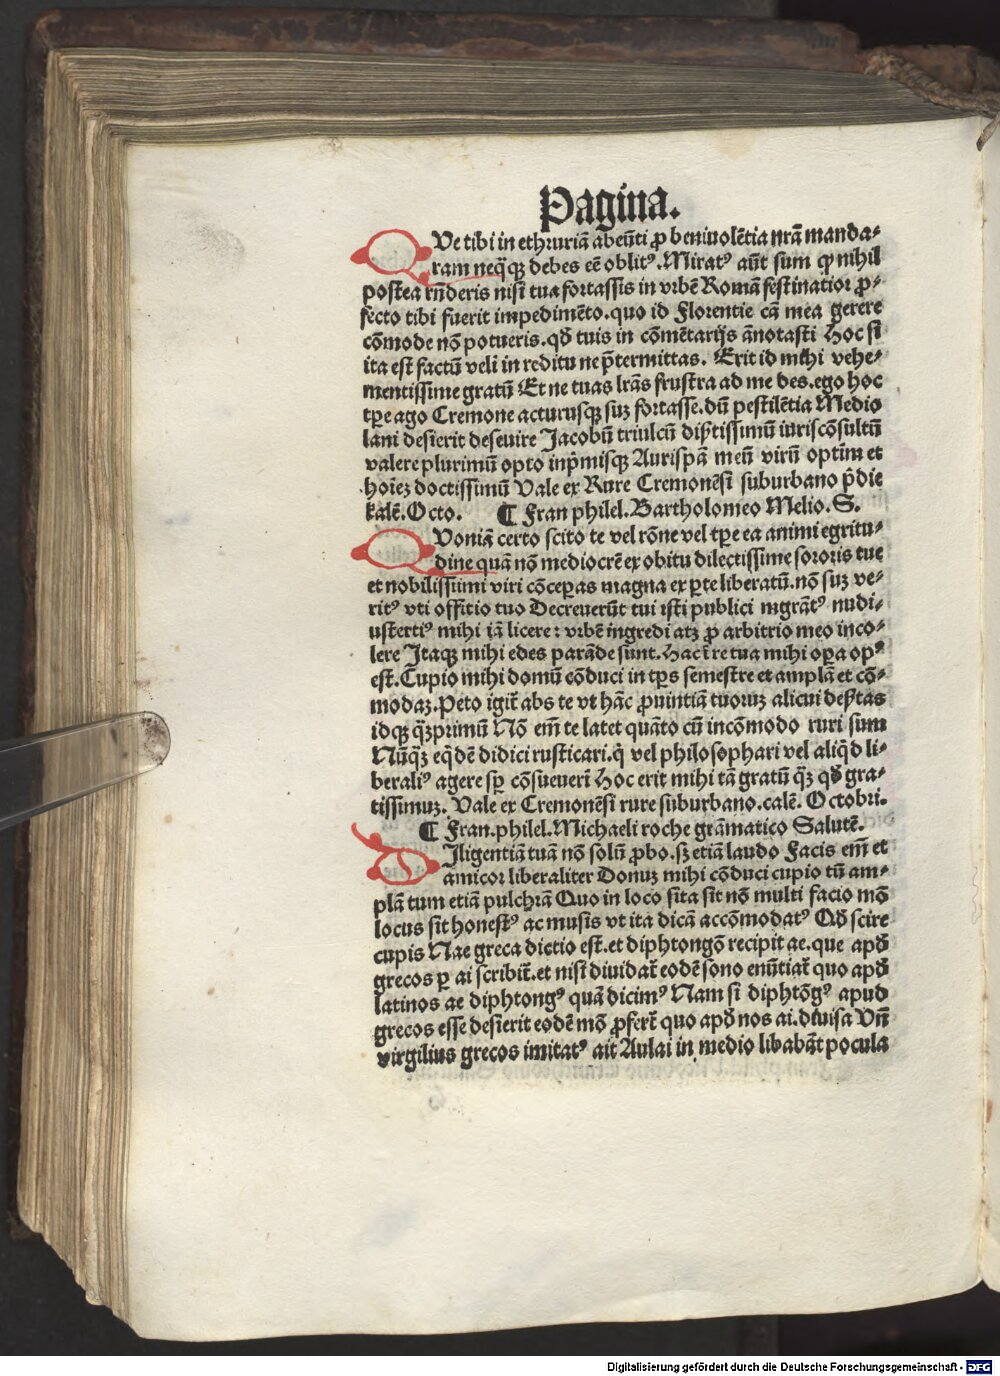 Pagina.
QVe tibi in ethruriā abeūti ꝓ beniuolētia nrā manda⸗
ram neq̃ꝗ debes eē oblitꝰ. Miratꝰ aūt sum ꝙ nihil
postea rñderis nisi tua fortassis in vrbē Romā festinatior ꝓ⸗
fecto tibi fuerit impedimēto. quo id Florentie cā mea gerere
cōmode nō potueris. qđ tuis in cōmētarijs ānotasti Hoc si
ita est factū veli in reditu ne p̄termittas. Erit id mihi vehe⸗
mentissime gratū Et ne tuas lrās frustra ad me des. ego hoc
tꝑe ago Cremone acturusqꝫ suꝫ fortasse. dū pestilētia Medio
lani desierit deseuire Jacobū triulcū disertissimū iuriscōsultū
valere plurimū opto inp̄misqꝫ Aurispā meū virū optīm et
hoīeꝫ doctissimū Vale ex Rure Cremonēsi suburbano p̄die
kalē. Octo. ¶ Fran philel. Bartholomeo Melio. S.
QVoniā certo scito te vel rōne vel tꝑe ea animi egritu⸗
dine quā nō mediocrē ex obitu dilectissime sororis tue
et nobilissimi viri cōceperas magna ex ꝑte liberatū. nō suꝫ ve⸗
ritꝰ vti offitio tuo Decreuerūt tui isti publici mgrātꝰ nudi⸗
ustertiꝰ mihi iā licere : vrbē ingredi atꝫ ꝓ arbitrio meo inco⸗
lere Itaqꝫ mihi edes parāde sunt. Hac ī re tua mihi oꝑa opꝰ
est. Cupio mihi domū cōduci in tꝑs semestre et amplā et cō⸗
modaꝫ. Peto igiť abs te vt hāc ꝓuintiā tuoruꝫ alicui des
idqꝫ q̄ꝫprimū Nō em̄ te latet quāto cū incōmodo ruri sum
Nūq̄ꝫ eq̄dē didici rusticari. q̇ vel philosophari vel aliq̇d li⸗
beraliꝰ agere sꝑ cōsueueri Hoc erit mihi tā gratū q̄ꝫ qđ gra⸗
tissimuꝫ. Vale ex Cremonēsi rure suburbano. calē. Octobri.
¶ Fran. philel. Michaeli roche grāmatico Salutē.
DIligentiā tuā nō solū ꝓbo. sꝫ etiā laudo Facis em̄ et
amicor liberaliter Domuꝫ mihi cōduci cupio tū am⸗
plā tum etiā pulchrā Quo in loco sita sit nō multi facio mō
locus sit honestꝰ ac musis vt ita dicā accōmodatꝰ Qđ scire
cupis Nae greca dictio est. et diphtongō recipit ae. que apđ
grecos ꝑ ai scribiť. et nisi diuidať eodē sono enūtiať quo apđ
latinos ae diphtongꝰ quā dicimꝰ Nam si diphtōgꝰ apud
grecos esse desierit eodē mō ꝓferť quo apđ nos ai. diuisa Vñ
virgilius grecos imitatꝰ ait Aulai in medio libabāt pocula
Digitalisierung gefördert durch die Deutsche Forschungsgemeinschaft - DFG